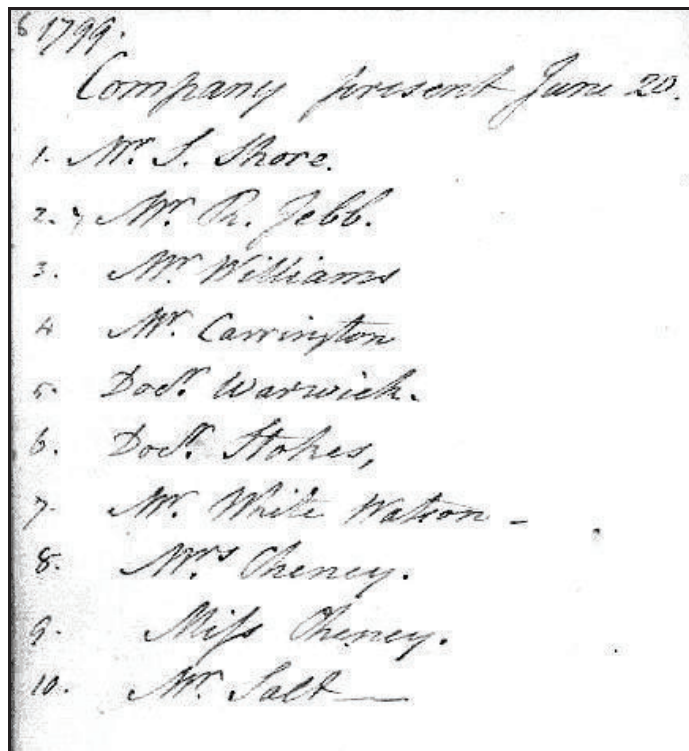 6 1799.
Company present June 20.
1. Mr. S. Shore.
2. Mr. R. Jebb.
3. Mr. Williams
4 Mr. Carrington
5. Docr. Warwick.
6. Docr. Stokes,
7. Mr. White Watson -
8. Mrs Cheney.
9. Miſs Cheney.
10. Mr. Salt —